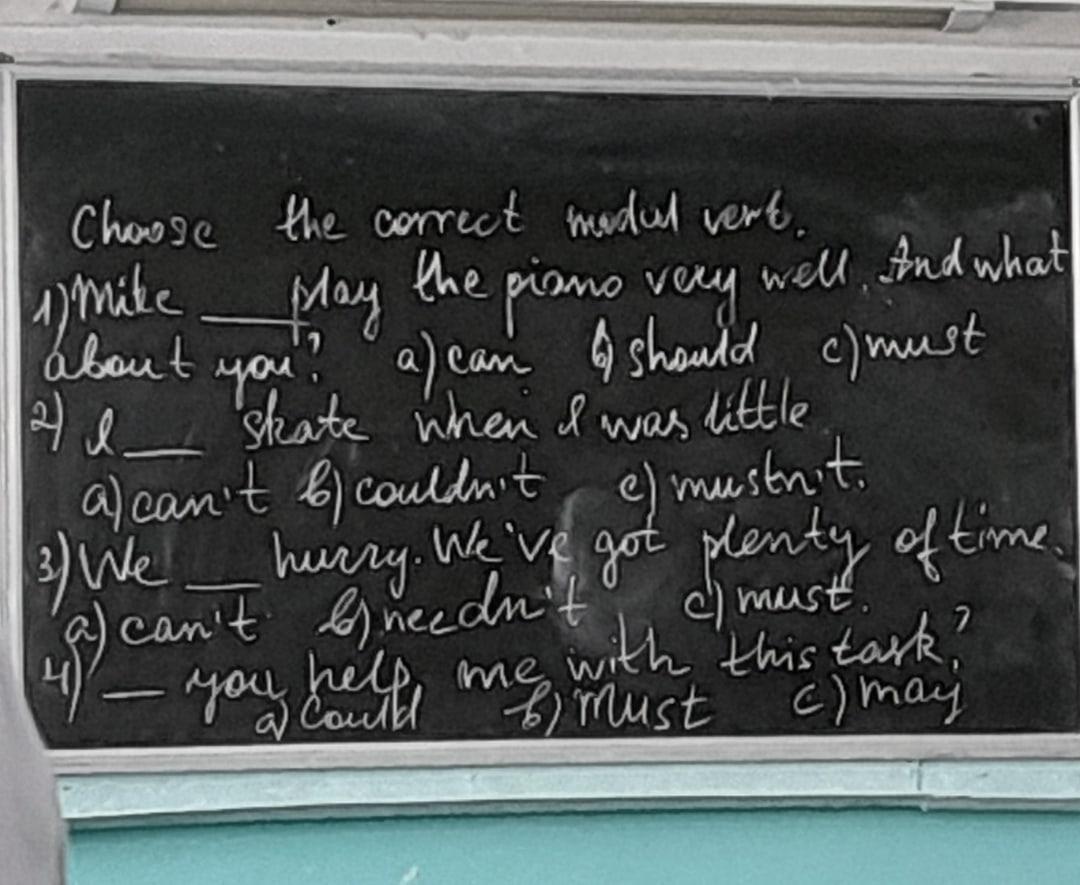 Choose the correct modul vert.
1) Mike ___ play the piano very well. And what
about you? a) can b) should c) must
2) I ___ skate when I was little
a) can't b) couldn't c) mustn't.
3) We ___ hurry. We've got plenty of time.
a) can't b) needn't c) must.
4) __ you help me with this task?
a) Could b) Must c) may